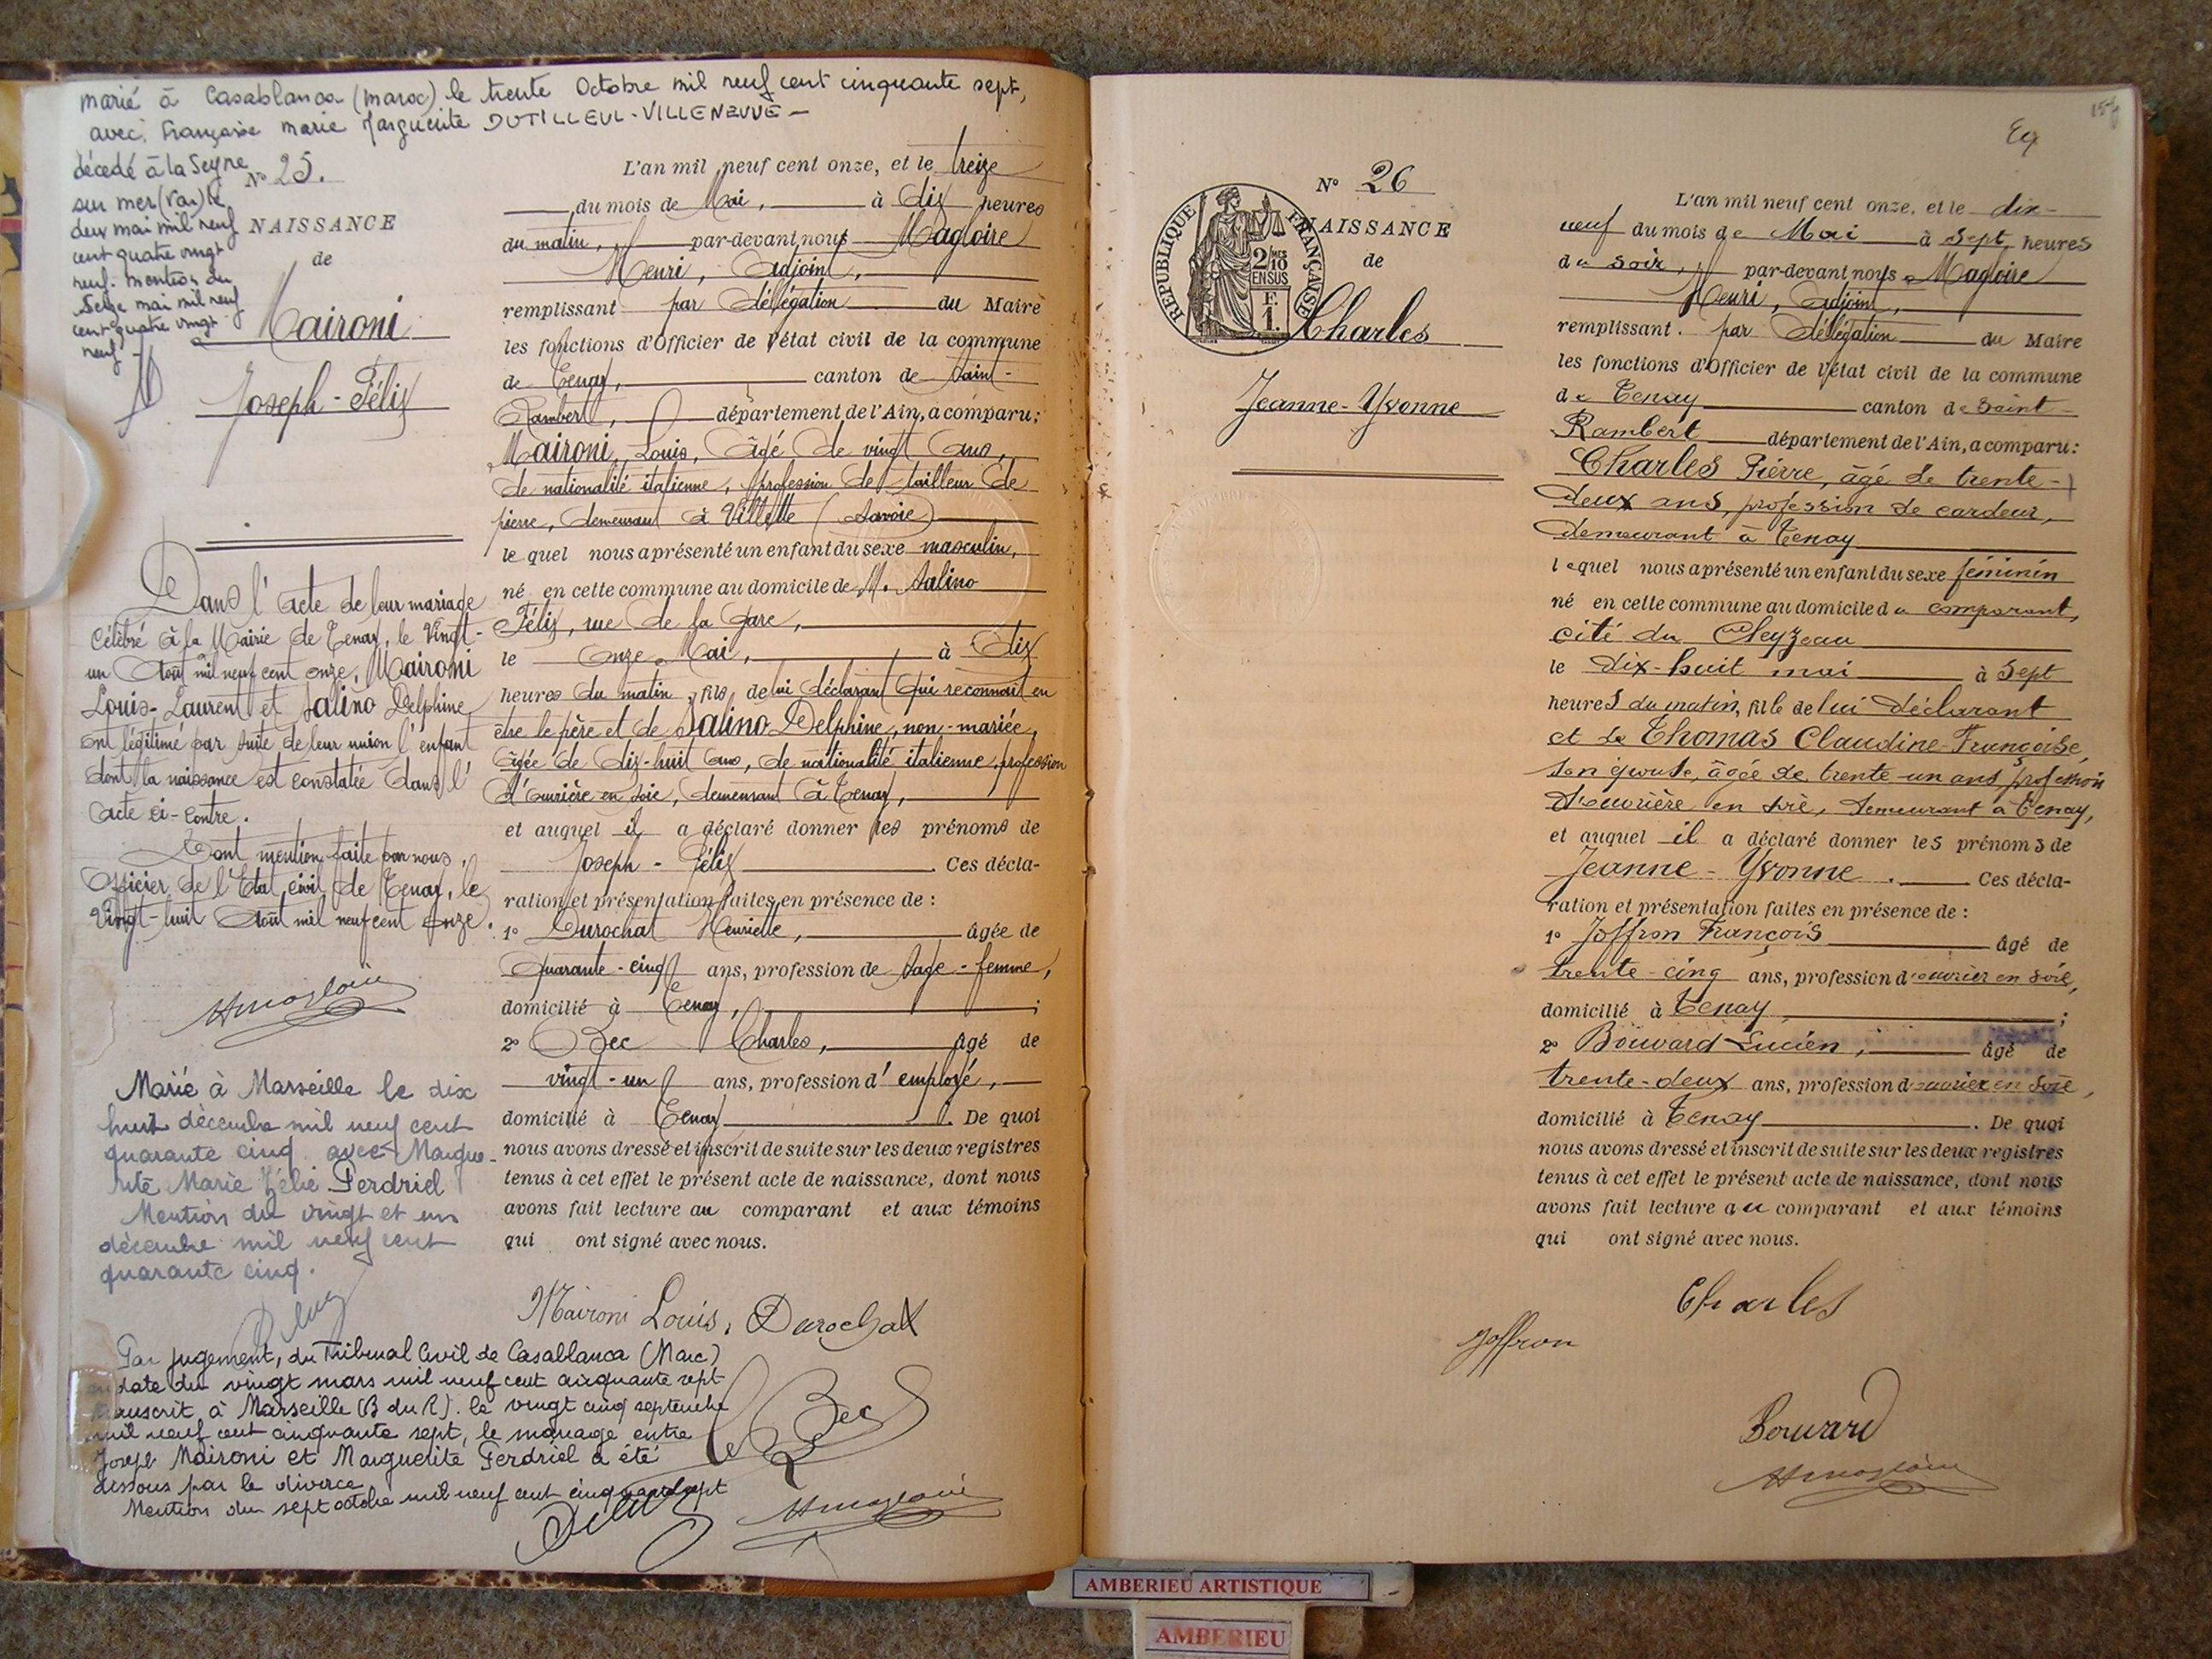 marié à Casablanca (maroc) le trente Octobre mil neuf cent cinquante sept,
avec, Françoise marie Marguerite DUTILLEUL-VILLENEUVE -
décédé à la Seyne
sur mer (Var) le
deux mai mil neuf
cent quatre vingt
neuf. mention du
Seize mai mil neuf
cent quatre vingt
neuf -
N° 25.
NAISSANCE
de
Maironi
Joseph-Félix
Dans l'acte de leur mariage
célébré à la Mairie de Tenay, le Vingt-
un août mil neuf cent onze, Maironi
Louis-Laurent et Salino Delphine
ont légitimé par suite de leur union l'enfant
dont la naissance est constatée dans l'
acte ci-contre.
Dont mention faite par nous,
Officier de l'Etat civil de Tenay, le
Vingt-huit août mil neuf cent onze.
Hmagloire
Marié à Marseille le dix
huit décembre mil neuf cent
quarante cinq avec Margue-
rite Marie Zélie Perdriel
Mention du vingt et un
décembre mil neuf cent
quarante cinq.
Par jugement, du Tribunal Civil de Casablanca (Maroc)
en date du vingt mars mil neuf cent cinquante sept
transcrit à Marseille (B du R). le vingt cinq septembre
mil neuf cent cinquante sept, le mariage entre
Joseph Maironi et Marguerite Perdriel a été
dissous par le divorce
Mention du sept octobre mil neuf cent cinquante sept
L'an mil neuf cent onze, et le treize
du mois de Mai, à dix heures
du matin, par-devant nous Magloire
Henri, Adjoint,
remplissant par délégation du Maire
les fonctions d'Officier de l'état civil de la commune
de Tenay, canton de Saint-
Rambert, département de l'Ain, a comparu:
Maironi, Louis, âgé de vingt ans,
de nationalité italienne, profession de tailleur de
pierre, demeurant à Villette (Savoie)
lequel nous a présenté un enfant du sexe masculin,
né en cette commune au domicile de M. Salino
Félix, rue de la Gare,
le onze Mai, à dix
heures du matin, fils de lui déclarant qui reconnait en
être le père et de Salino Delphine, non-mariée,
âgée de dix-huit ans, de nationalité italienne, profession
d'ouvrière en soie, demeurant à Tenay,
et auquel il a déclaré donner les prénoms de
Joseph-Félix. Ces décla-
ration et présentation faites en présence de :
1° Durochat Henriette, âgée de
Quarante-cinq ans, profession de sage-femme,
domicilié à Tenay, ;
2° Bec Charles, âgé de
vingt-un ans, profession d'employé,
domicilié à Tenay. De quoi
nous avons dressé et inscrit de suite sur les deux registres
tenus à cet effet le présent acte de naissance, dont nous
avons fait lecture au comparant et aux témoins
qui ont signé avec nous.
Maironi Louis, Durochat
Bec
Hmagloire
N° 26
NAISSANCE
de
RÉPUBLIQUE FRANÇAISE
2/10
EN SUS
F.
1.
Charles
Jeanne-Yvonne
L'an mil neuf cent onze, et le dix-
neuf du mois de Mai à sept heures
du soir, par-devant nous Magloire
Henri, Adjoint,
remplissant par délégation du Maire
les fonctions d'Officier de l'état civil de la commune
de Tenay canton de Saint-
Rambert département de l'Ain, a comparu:
Charles Pierre, âgé de trente-
deux ans, profession de cardeur,
demeurant à Tenay
lequel nous a présenté un enfant du sexe féminin
né en cette commune au domicile du comparant,
cité du Cleyzeau
le dix-huit mai à sept
heures du matin, fille de lui déclarant
et de Thomas Claudine-Françoise,
son épouse, âgée de trente-un ans, profession
d'ouvrière en soie, demeurant à Tenay,
et auquel il a déclaré donner les prénoms de
Jeanne-Yvonne. Ces décla-
ration et présentation faites en présence de :
1° Joffron François âgé de
trente-cinq ans, profession d'ouvrier en soie,
domicilié à Tenay, ;
2° Bouvard Lucien, âgé de
trente-deux ans, profession d'ouvrier en soie,
domicilié à Tenay. De quoi
nous avons dressé et inscrit de suite sur les deux registres
tenus à cet effet le présent acte de naissance, dont nous
avons fait lecture au comparant et aux témoins
qui ont signé avec nous.
Charles
Joffron
Bouvard
Hmagloire
AMBERIEU ARTISTIQUE
AMBERIEU